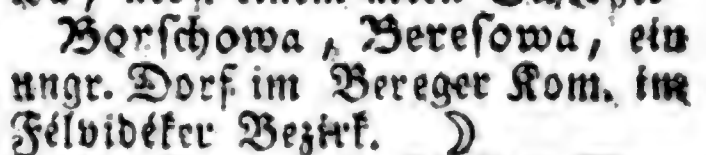 Borſchowa, Bereſowa, ein
ungr. Dorf im Bereger Kom. im
Félvidéker Bezirk. ☽